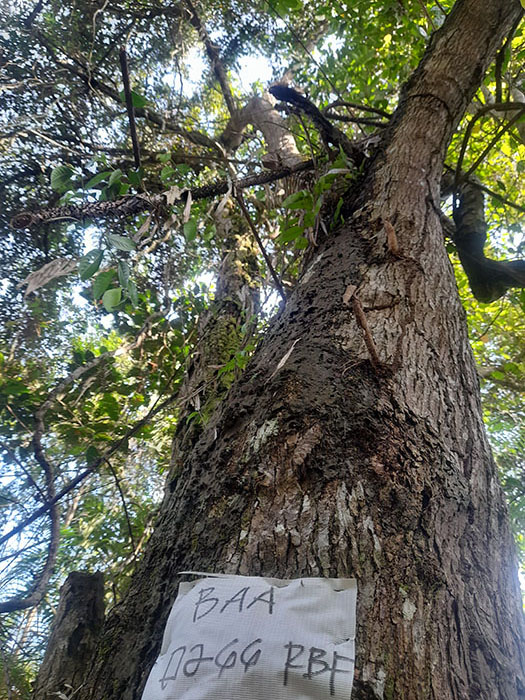 BAA
0266 RBF